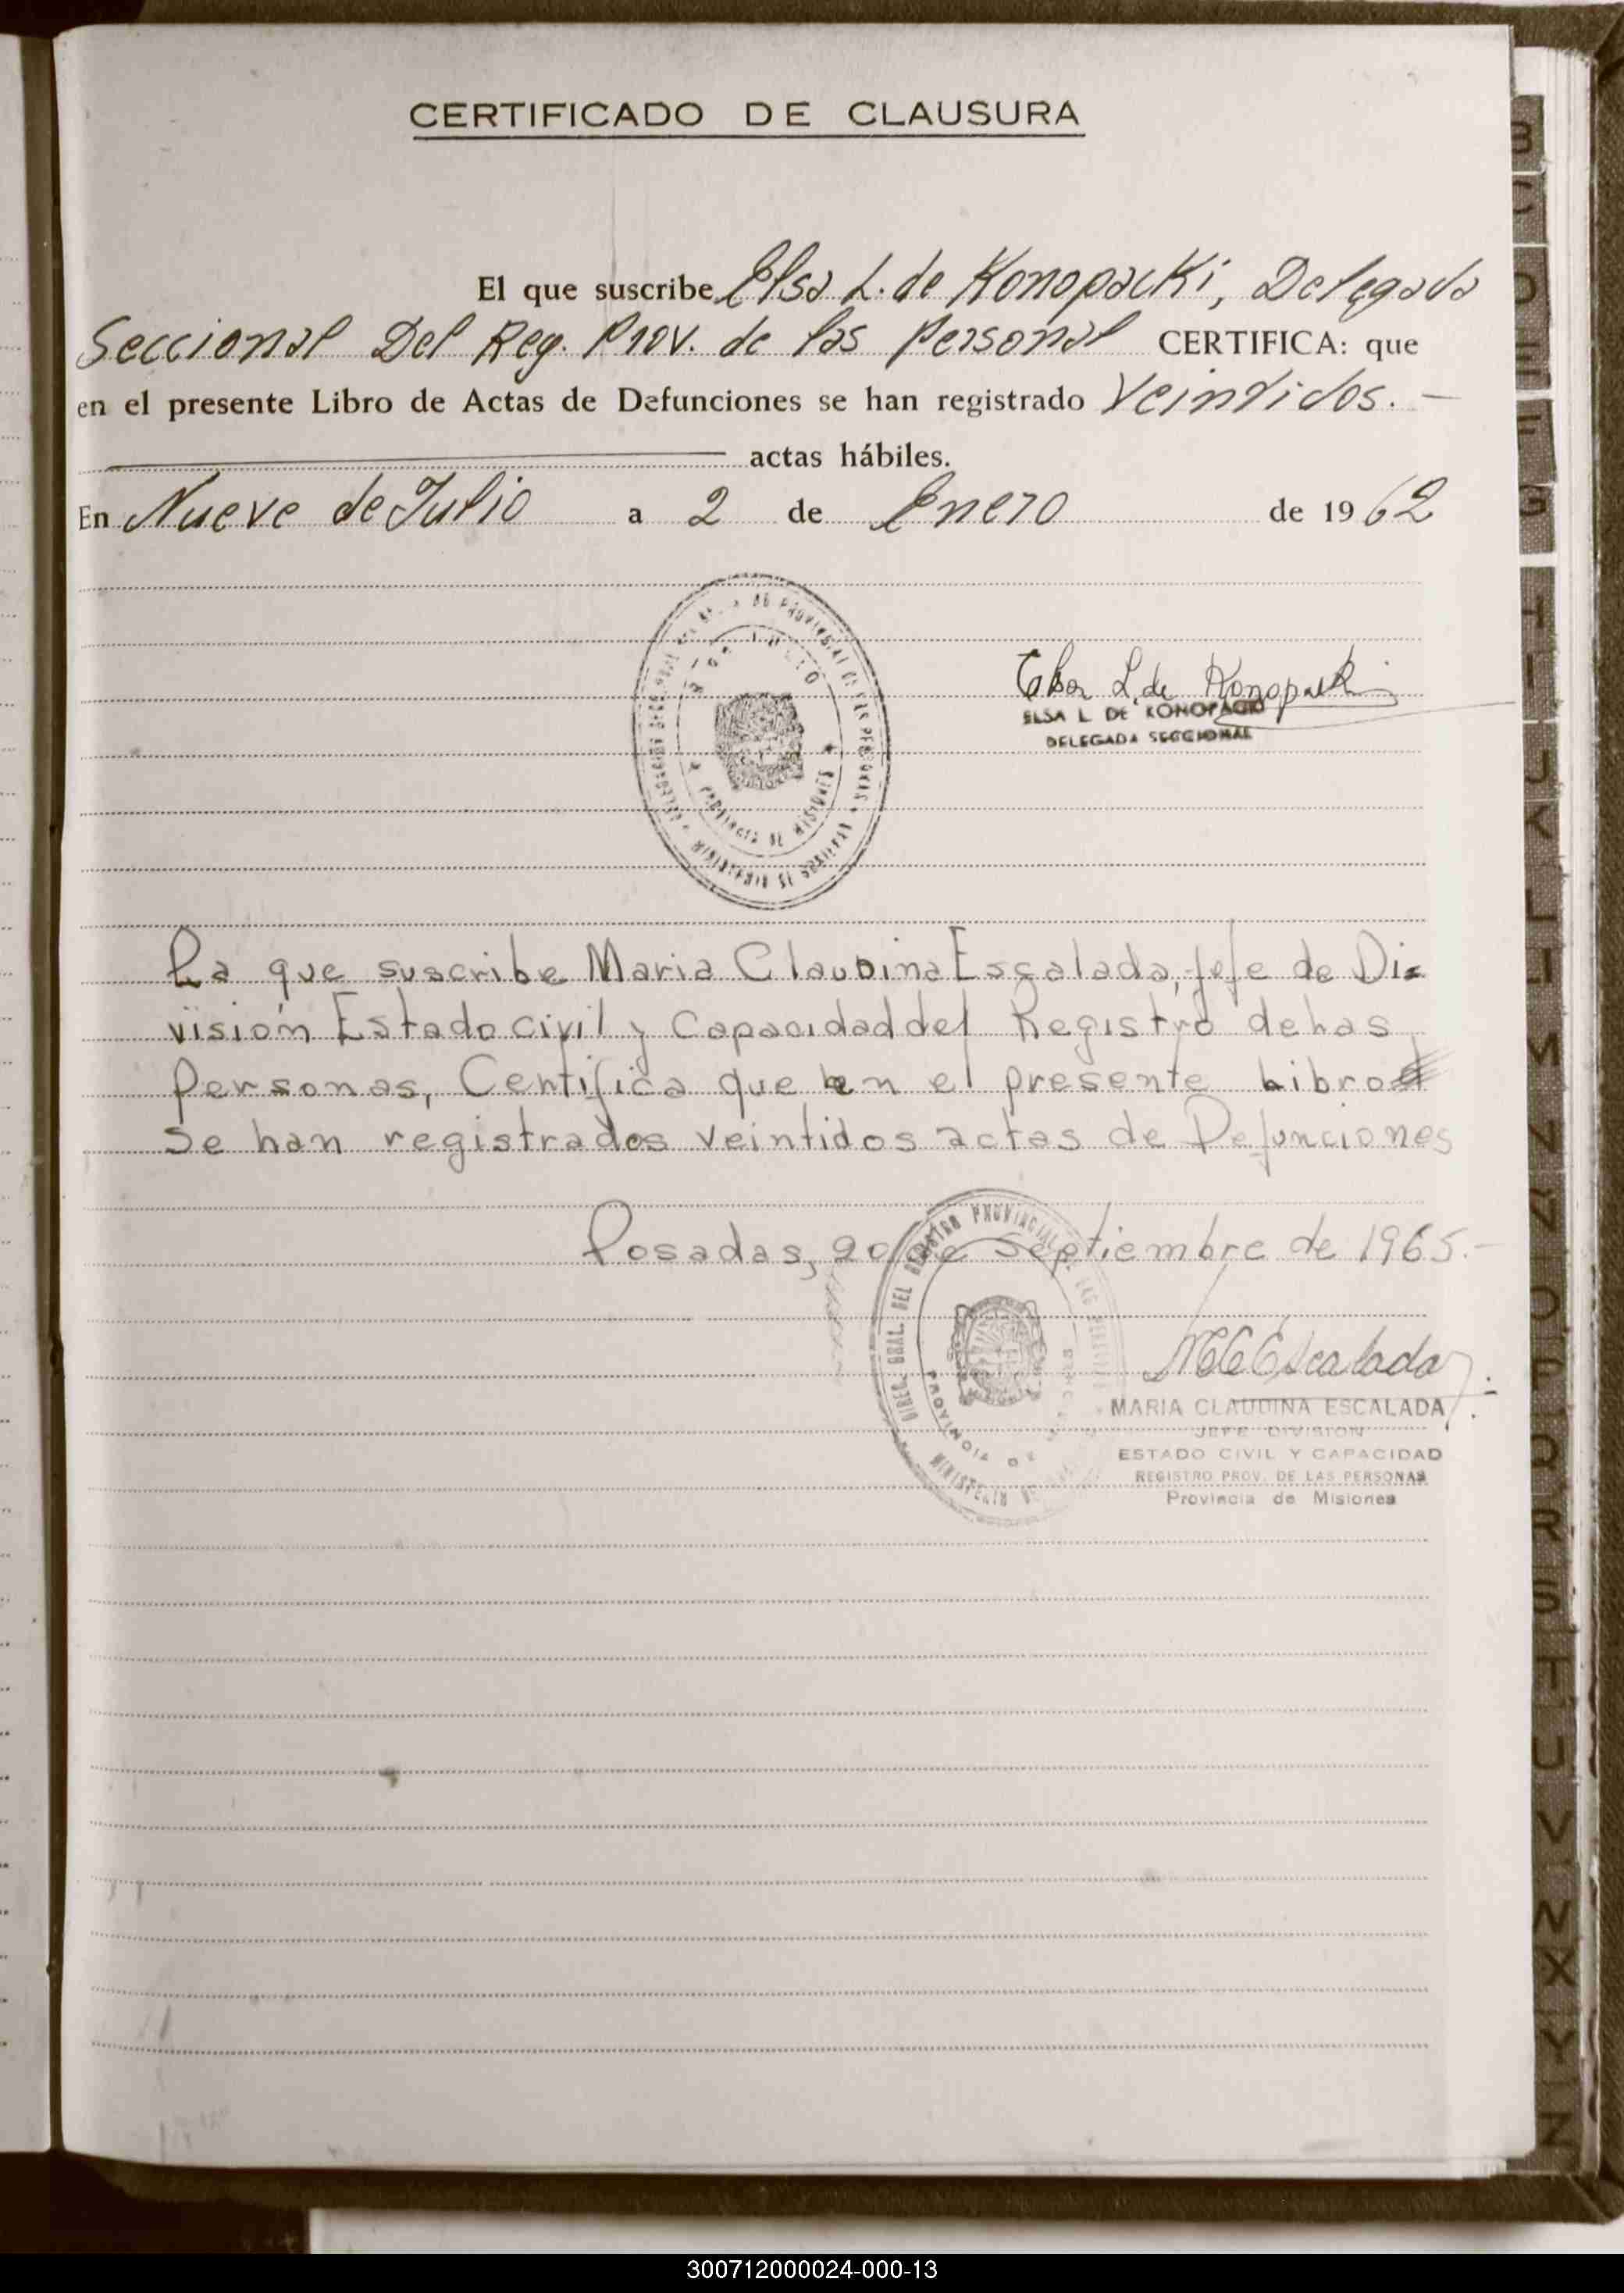 CERTIFICADO DE CLAUSURA
El que suscribe Elsa L. de Konopacki, Delegada
Seccional Del Reg. Prov. de las personal CERTIFICA: que
en el presente Libro de Actas de Defunciones se han registrado Veintidos. —
actas hábiles.
En Nueve de Julio a 2 de Enero de 1962
Elsa L. de Konopacki
ELSA L. DE KONOPACKI
DELEGADA SECCIONAL
PROVINCIA DE MISIONES
La que suscribe Maria Claudina Escalada, jefe de Di=
visión Estado Civil y Capacidad del Registro de Las
Personas, Centifica que en el presente Libro
se han registrados veintidos actas de Defunciones
Posadas, 20 de Septiembre de 1965.-
DIREC. GRAL. DEL REGISTRO PROVINCIAL DE LAS
PROVINCIA DE
MINISTERIO
MCEscalada
MARIA CLAUDINA ESCALADA
JEFE DIVISION
ESTADO CIVIL Y CAPACIDAD
REGISTRO PROV. DE LAS PERSONAS
Provincia de Misiones
B
C
D
E
F
G
H
I
J
K
L
LL
M
N
Ñ
O
P
Q
R
S
T
U
V
W
X
Y
Z
300712000024-000-13